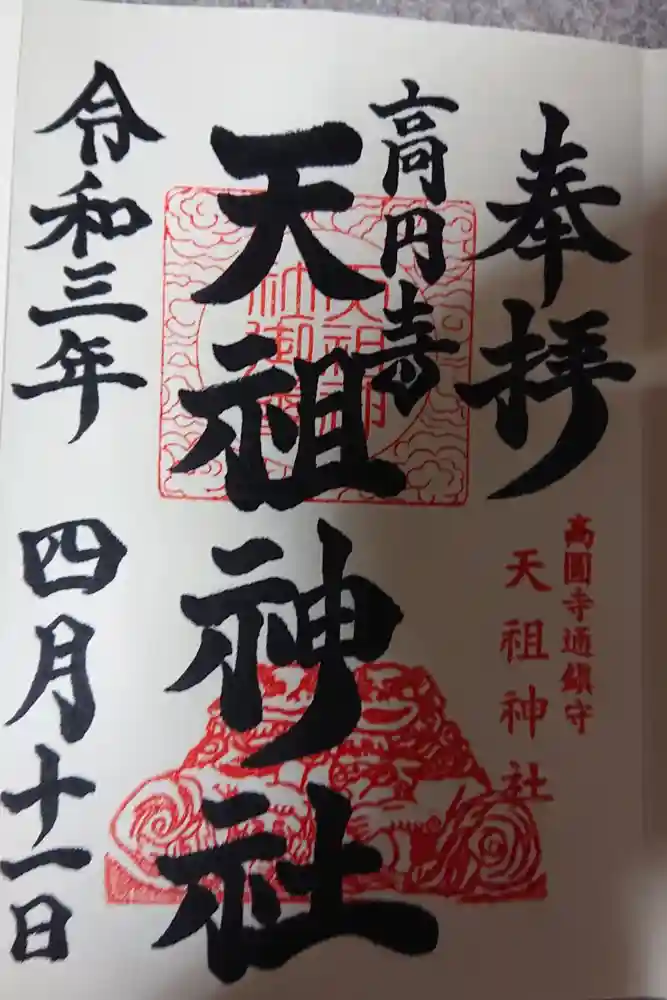 奉拝
高圓寺通鎮守
天祖神社
高円寺
天祖神社
令和三年 四月十一日